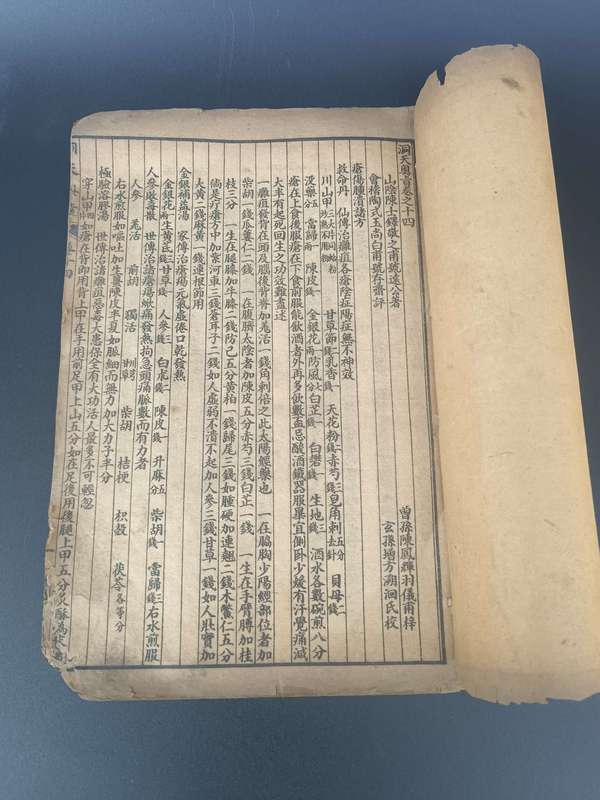 洞天奧旨卷之十四
山陰陳士鐸敬之甫號遠公著
會稽陶式玉尚白甫號存齋評
曾孫陳鳳輝羽儀甫梓
玄孫增方溯洄氏校
瘡瘍腫潰諸方
救命丹　仙傳治癰疽各瘡陰症陽症無不神效
川山甲三大片同蛤粉炒熟不用粉　甘草節二錢　乳香一錢　天花粉二錢　赤芍三錢　皂角刺五分去針　貝母二錢
沒藥五分　當歸一兩　陳皮一錢　金銀花一兩　防風七分　白芷一錢　白礬一錢　生地三錢　酒水各數碗煎八分
瘡在上食後服瘡在下食前服能飲酒者外再多飲數盃忌酸酒鐵器服畢宜側卧少緩有汗覺痛減
大半有起死回生之功效難盡述
一癰疽發背在頭及腦後背脊加羌活一錢角刺倍之此太陽經藥也　一在脇胸少陽經部位者加
柴胡一錢瓜蔞仁二錢　一在腹臍太陰者加陳皮五分赤芍三錢白芷一錢　一生在手臂膊加桂
枝三分　一生在腿膝加牛膝二錢防己五分黃柏一錢歸尾三錢如腫硬加連翹二錢木鱉仁五分
倘是疔瘡方中加紫河車三錢蒼耳子三錢如人虛弱不潰不起加人參三錢甘草一錢如人壯實加
大黃二錢麻黃一錢連根節用
金銀補益湯　家傳治瘡瘍元氣虛倦口乾發熱
金銀花二兩　生黃芪三錢　甘草一錢　人參三錢　白朮二錢　陳皮一錢　升麻五分　柴胡一錢　當歸三錢　右水煎服
人參敗毒散　世傳治諸瘡瘍焮痛發熱拘急頭痛脈數而有力者
人參　羌活　前胡　獨活　川芎　甘草　柴胡　桔梗　枳殼　茯苓各等分
右水煎服如嘔吐加生薑陳皮半夏如脈細而無力加大力子半分
極驗溶膠湯　世傳治諸癰疽惡毒大患保全有大功活人最多不可輕忽
穿山甲四片如瘡在背即用背上甲在手用前足甲上山五分如在足後用後腿上甲五分火酥為末